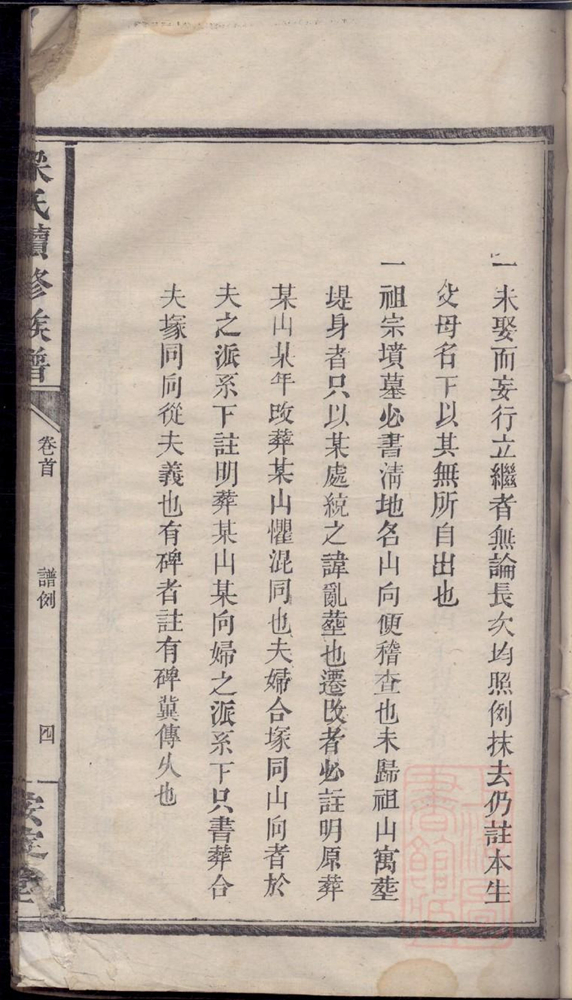 一未娶而妄行立繼者無論長次均照例抹去仍註本生
父母名下以其無所自出也
一祖宗墳墓必書淸地名山向便稽查也未歸祖山寓塟
堤身者只以某處統之諱亂塟也遷改者必註明原葬
某山某年改葬某山懼混同也夫婦合塚同山向者於
夫之派系下註明葬某山某向婦之派系下只書葬合
夫塚同向從夫義也有碑者註有碑冀傳久也
氏續修族譜
卷首
譜例
四
堂